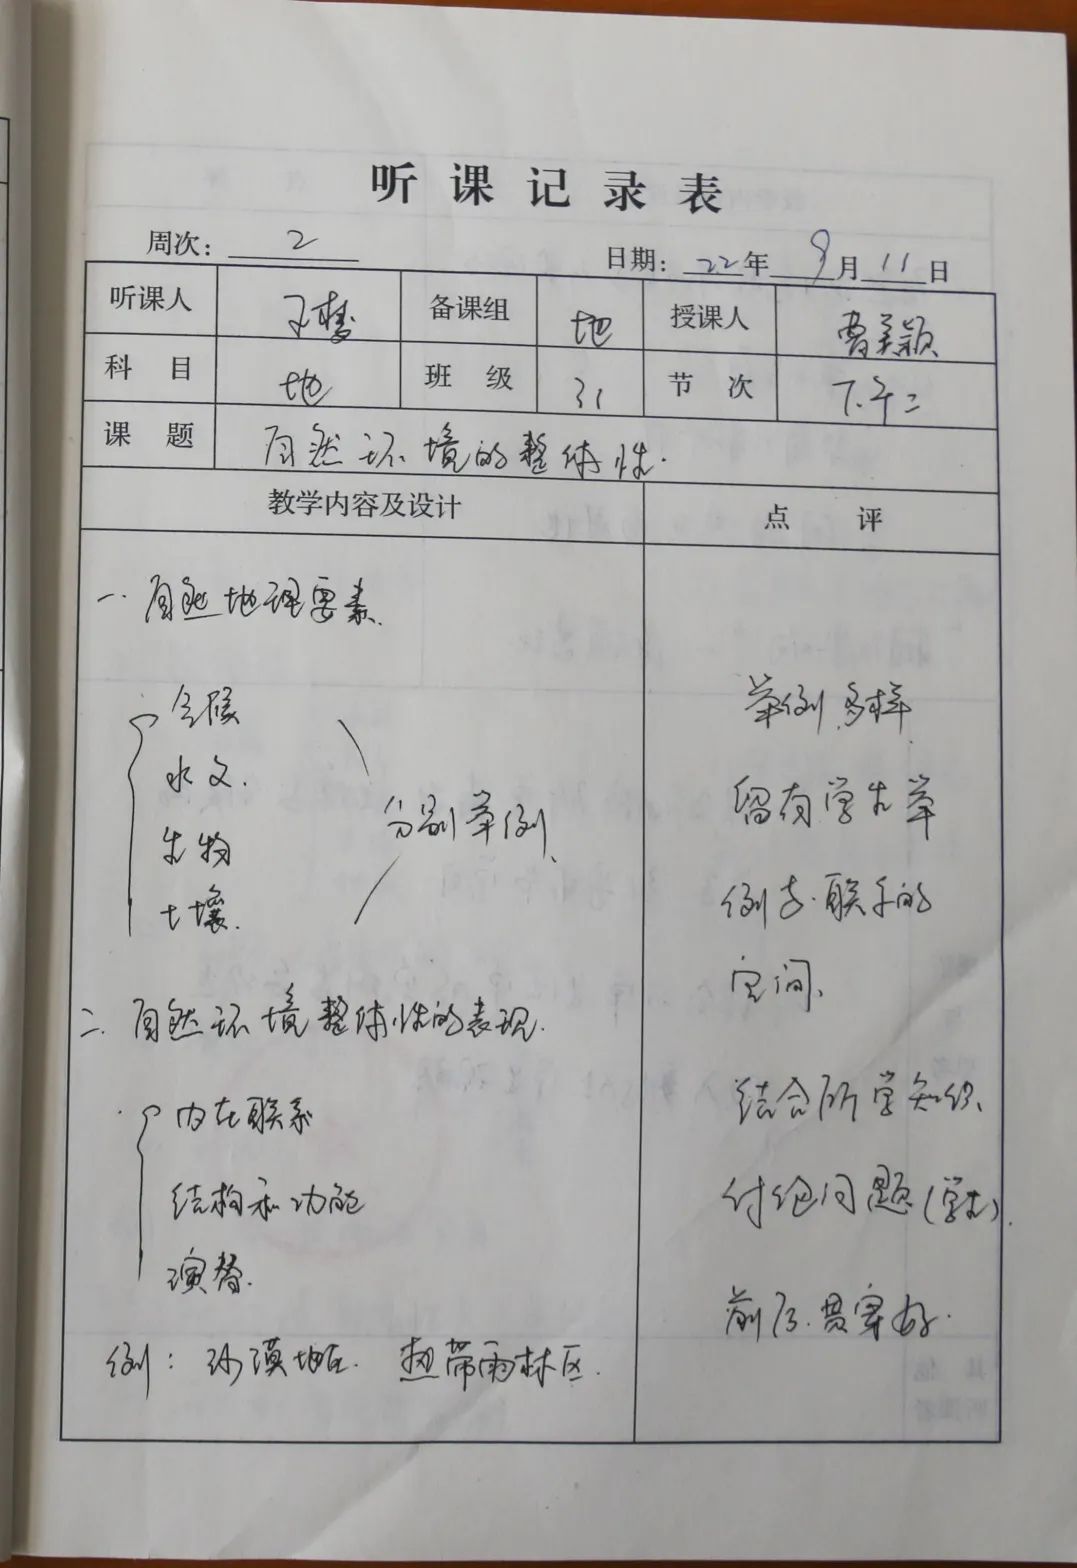 听课记录表
周次: 2 日期: 22年9月11日
听课人 王梦 备课组 地 授课人 曹美颖
科目 地 班级 31 节次 下午二
课题 自然环境的整体性.
教学内容及设计 点评
一. 自然地理要素.
气候
水文.
生物
土壤.
分别举例.
二. 自然环境整体性的表现.
内在联系
结构和功能
演替.
例: 沙漠地区. 热带雨林区.
举例多样
留有学生举
例子.联系的
空间.
结合所学知识.
讨论问题(学生).
前后.贯穿好.